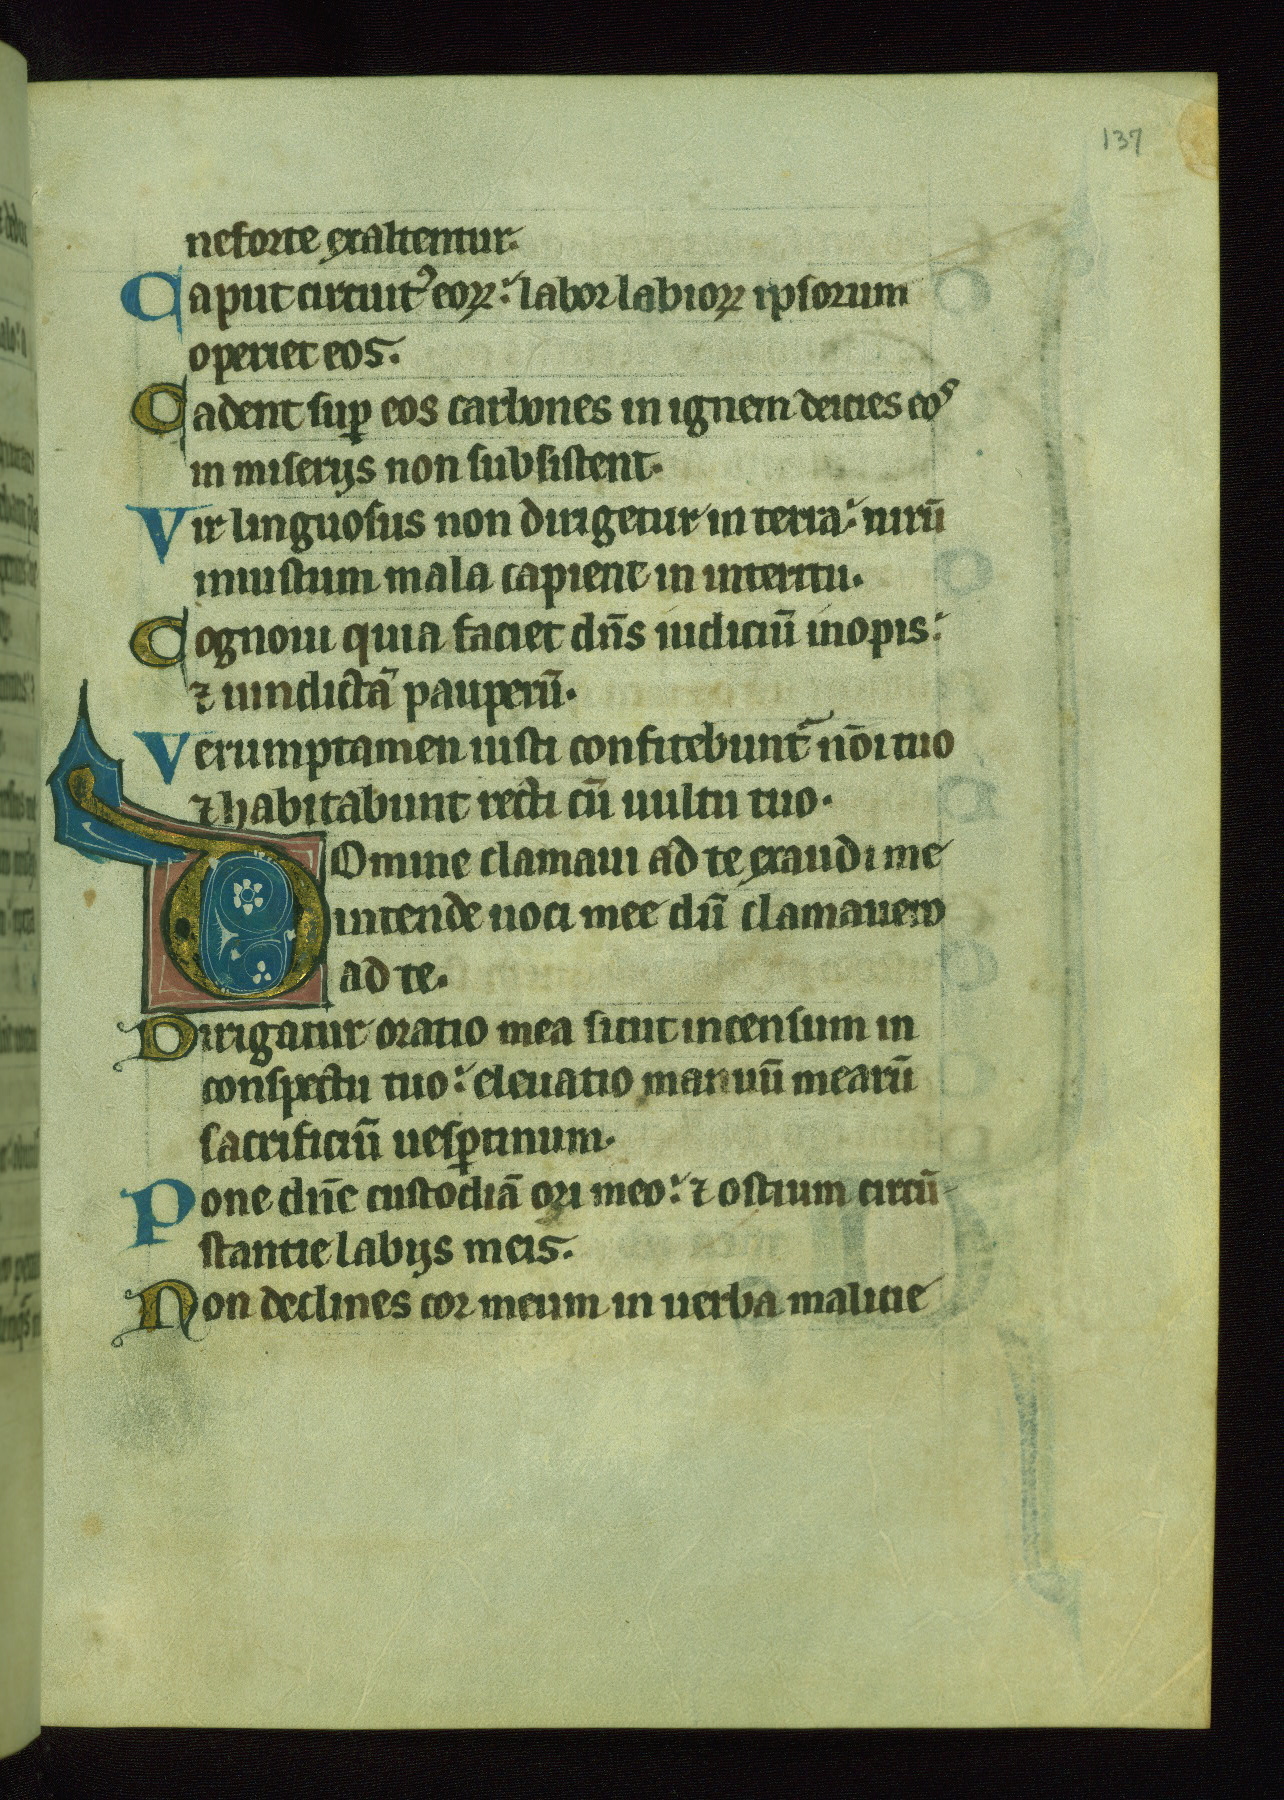 137
neforte exaltentur.
Caput circuit᾽ eoꝝ: labor labioꝝ ipsorum
operiet eos.
Cadent suꝑ eos carbones in ignem deicies eoˢ
in miserijs non subsistent.
Vir linguosus non dirigetur in terra: uirū
iniustum mala capient in interitu.
Cognoui quia faciet dn̄s iudiciū inopis:
⁊ uindictā pauperū.
Verumptamen iusti confitebunt᷑ nōi tuo
⁊ habitabunt recti cū uultu tuo.
Domine clamaui ad te exaudi me
intende uoci mee dū clamauero
ad te.
Dirigatur oratio mea sicut incensum in
conspectu tuo: eleuatio manuū mearū
sacrificiū uesꝑtinum.
Pone dn̄e custodiā ori meo: ⁊ ostium circū-
stantie labijs meis.
Non declines cor meum in uerba malicie